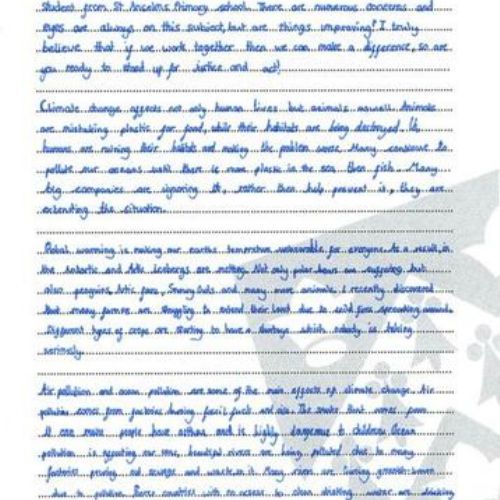 student from St Anselms Primary school. There are numerous concerns and
eyes are always on this subject, but are things improving? I truly
believe that if we work together then we can make a difference, so are
you ready to stand up for Justice and act!
Climate change affects not only human lives but animals aswell. Animals
are mistaking plastic for food, while their habitats are being destroyed. Us,
humans are ruining their habitats and making the problem worse. Many continue to
pollute our oceans until there is more plastic in the sea then fish. Many
big companies are ignoring it, rather then help prevent is, they are
extending the situation.
Global warming is making our earths temperature unbearable for everyone. As a result, in
the Antartic and Artic Icebergs are melting. Not only polar bears are suffering but
also penguins, Artic foxes, Snowy Owls and many more animals. I recently discovered
that many farmers are struggling to their land due to wild fires spreading around.
Different types of crops are starting to have a shortage which nobody is taking
seriously.
Air pollution and ocean pollution are some of the main effects of climate change. Air
pollution comes from factories burning fossil fuels and The smoke that comes from
it can make people have asthma and is highly dangerous to children. Ocean
pollution is our beautiful rivers are being polluted due to many
factories and waste in it. Many rivers are turning greenish-brown
due to pollution. countries with no access to clean drinking water are drinking